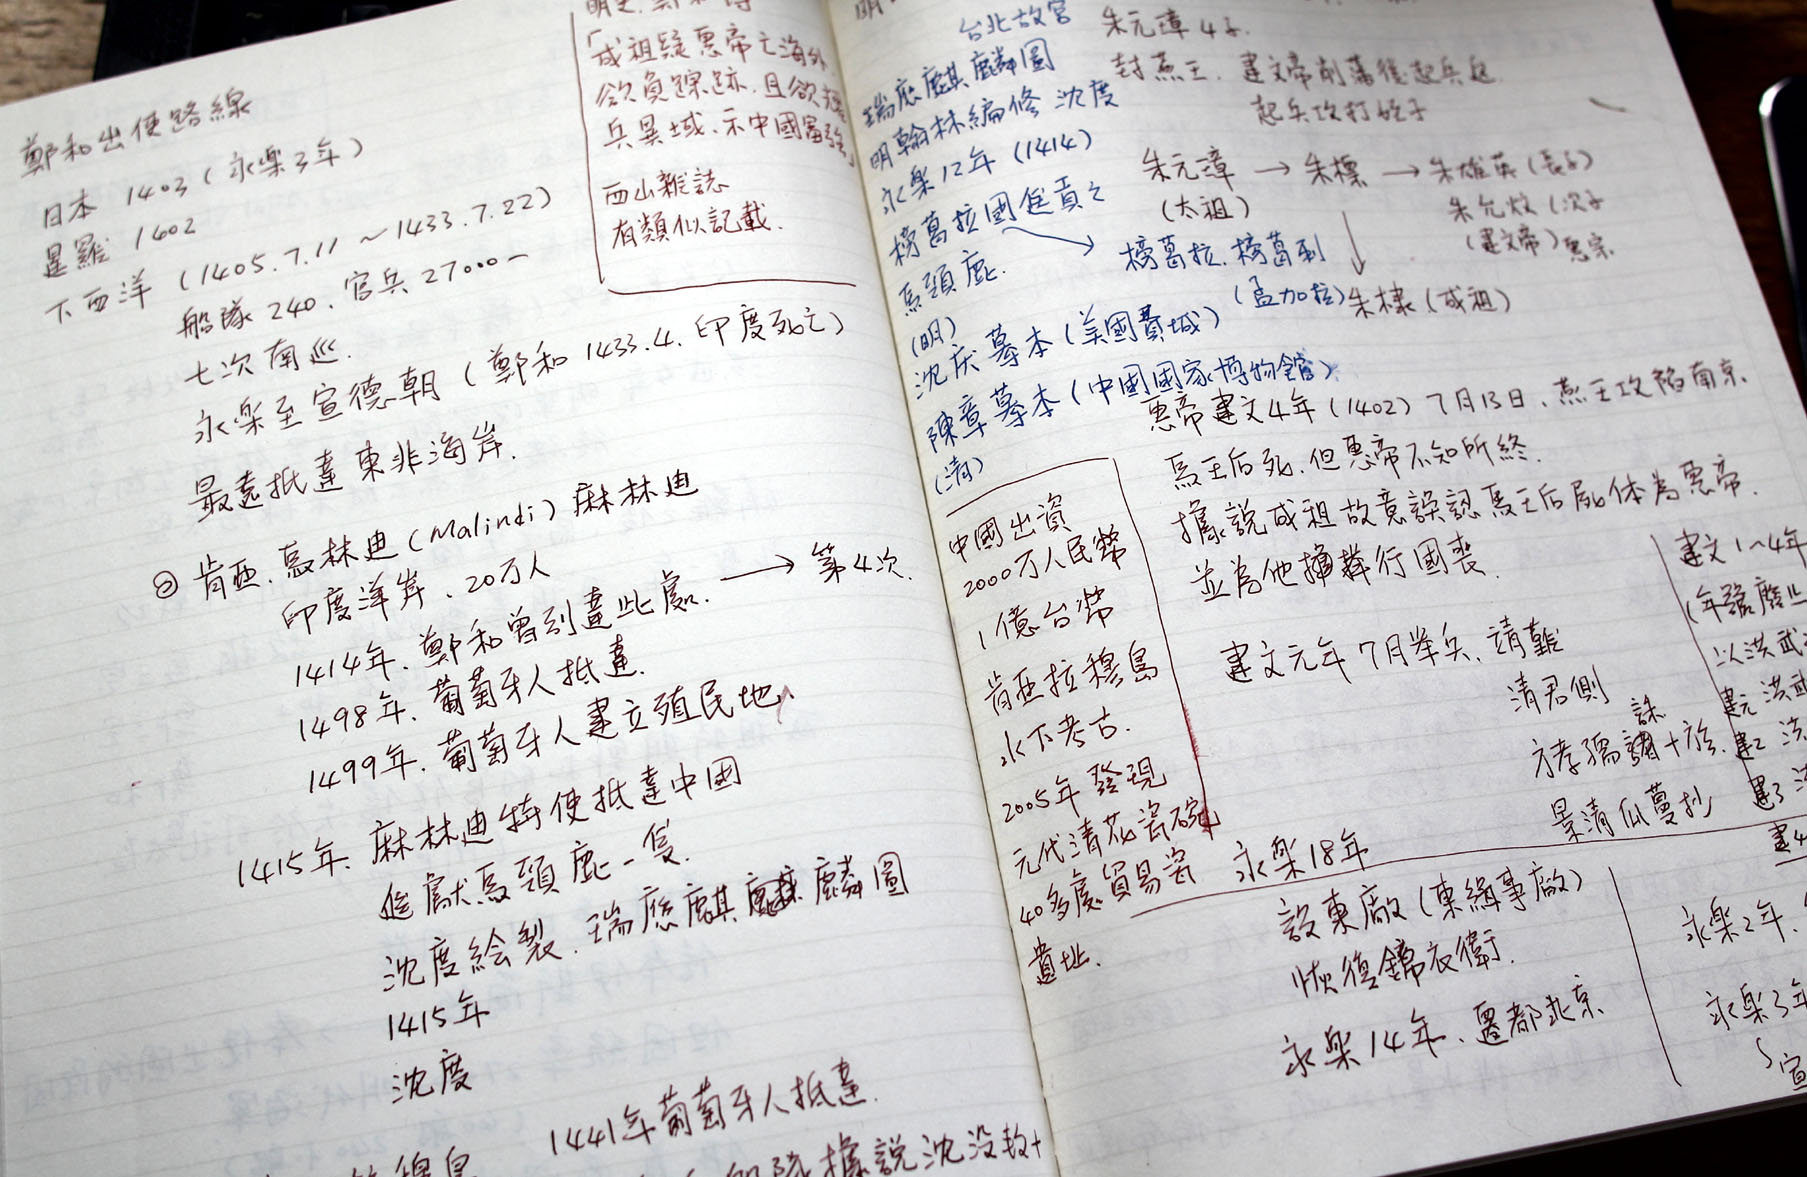 鄭和出使路線
日本 1403(永樂3年)
暹羅 1402
下西洋(1405.7.11~1433.7.22)
船隊240.官兵27000一
七次南巡.
永樂至宣德朝(鄭和1433.4.印度死亡)
最遠抵達東非海岸.
肯亞.馬林迪(Malindi)麻林迪
印度洋岸、20万人
1414年.鄭和曾到達此處. → 第4次.
1498年.葡萄牙人抵達.
1499年.葡萄牙人建立殖民地
1415年.麻林迪特使抵達中國
進獻馬頸鹿一隻.
沈度繪製.瑞應麒麟圖
1415年
沈度
1441年葡萄牙人抵達.
據說沈沒
「成祖疑惠帝亡海外.
欲負蹤跡.且欲耀
兵異域、示中國富強」
西山雜誌
有類似記載.
台北故宮
瑞應麒麟圖
明翰林編修 沈度
永樂12年(1414)
榜葛拉國進貢之
馬頸鹿.
→ 榜葛拉.榜葛剌
(孟加拉)
(明)
沈庆摹本(美國費城)
陳璋摹本(中国国家博物館)
(清)
中國出資
2000万人民幣
1億台幣
肯亞拉穆島
水下考古.
2005年發現
元代清花瓷碗
40多處貿易瓷
遺址.
朱元璋4子.
封燕王.建文帝削藩後起兵
起兵攻打姪子
朱元璋 → 朱標 → 朱雄英(長子)
(太祖)
朱允炆(次子
(建文帝)惠宗
朱棣(成祖)
惠帝建文4年(1402)7月13日.燕王攻陷南京.
馬王后死.但惠帝不知所終.
據說成祖故意誤認馬王后屍体為惠帝.
並為他舉行國喪.
建文元年7月举兵.靖難
清君側
方孝孺誅十族.
景清瓜蔓抄
建文1~4年
(年號廢止
以洪武
建元 洪武
建2 洪
建3 洪
建4
永樂18年
設東廠(東緝事廠)
恢復錦衣衛.
永樂14年.遷都北京.
永樂2年.
永樂3年
宣